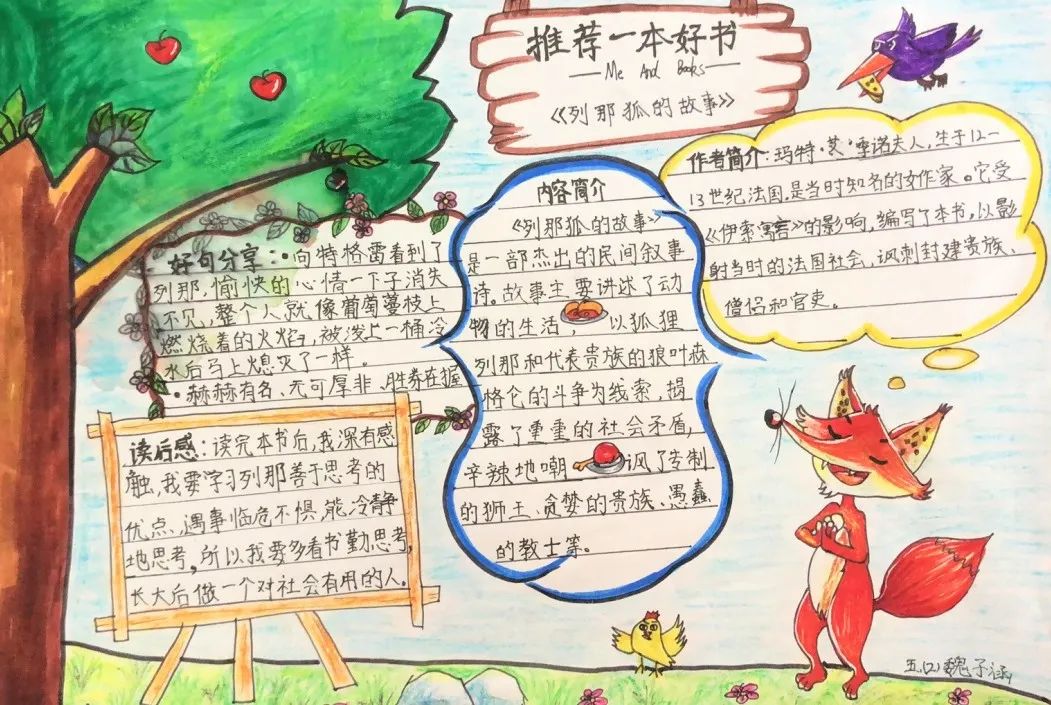 推荐一本好书
—Me And Books—
《列那狐的故事》
作者简介：玛特·艾·季诺夫人，生于12一
13世纪法国，是当时知名的女作家。它受
《伊索寓言》的影响，编写了本书，以影
射当时的法国社会，讽刺封建贵族、
僧侣和官吏。
内容简介
《列那狐的故事》
是一部杰出的民间叙事
诗。故事主要讲述了动
物的生活 以狐狸
列那和代表贵族的狼叶森
格仑的斗争为线索，揭
露了重重的社会矛盾，
辛辣地嘲 讽了专制
的狮王、贪婪的贵族、愚蠢
的教士等。
好句分享：·向特格雷看到了
列那，愉快的心情一下子消失
不见，整个人就像葡萄蔓枝上
燃烧着的火焰，被泼上一桶冷
水后马上熄灭了一样。
·赫赫有名、无可厚非、胜券在握
读后感：读完本书后，我深有感
触，我要学习列那善于思考的
优点、遇事临危不惧，能冷静
地思考。所以我要多看书勤思考，
长大后做一个对社会有用的人。
五(2)魏子涵